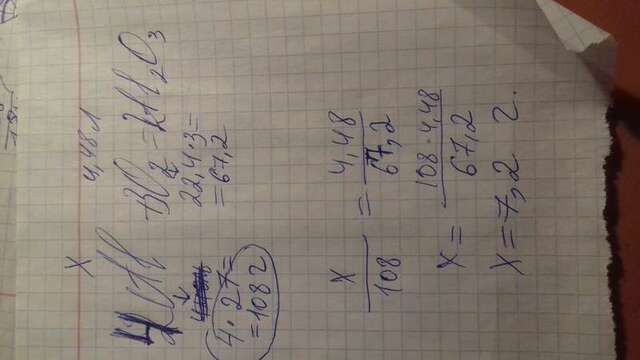 x 4,48 л
4Al + 3O₂ = 2Al₂O₃
4·27= 22,4·3=
=108 г =67,2
x/108 = 4,48/67,2
x = 108·4,48/67,2
x = 7,2 г.